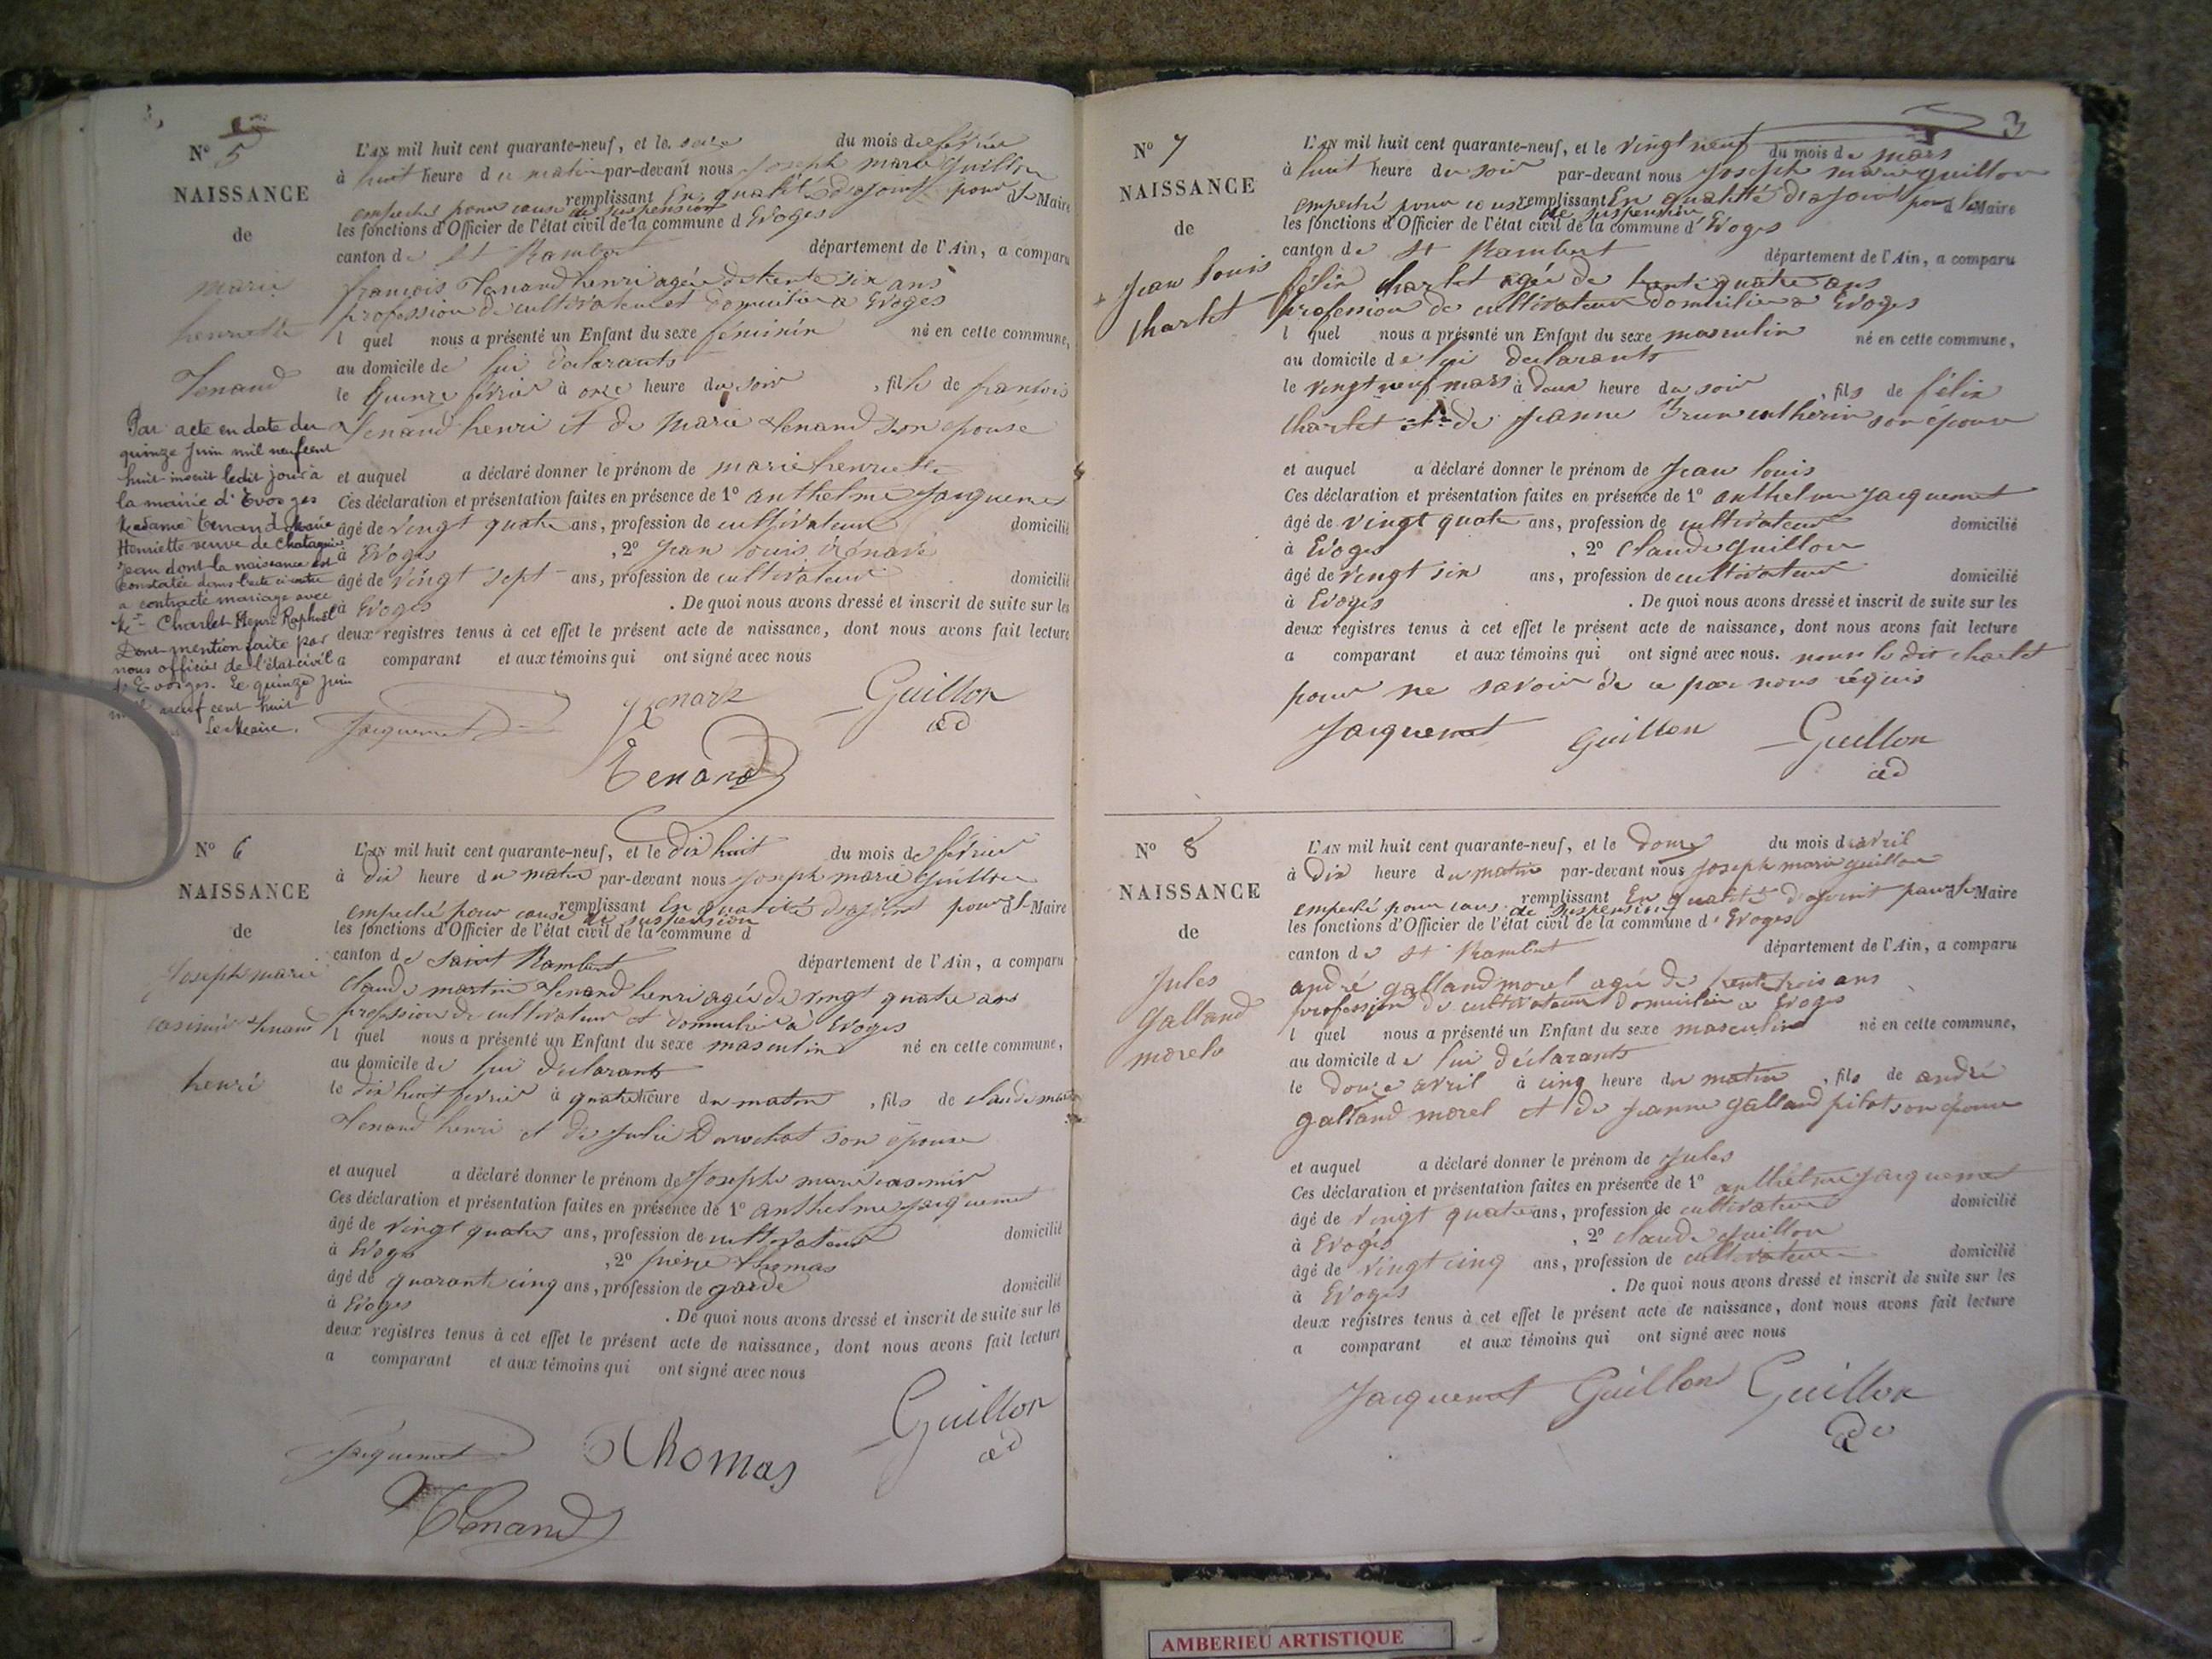 N° 5
NAISSANCE
de
marie
henriette
Tenand
Par acte en date du
quinze Juin mil neuf cent
huit inscrit ledit jour à
la mairie d'Evosges
Madame Tenand Marie
Henriette veuve de Chatagnier
Jean dont la naissance est
constatée dans l'acte ci-contre
a contracté mariage avec
Mr Charlet Henri Raphaël
Dont mention faite par
nous officier de l'état-civil
d'Evosges. Le quinze Juin
mil neuf cent huit
Le Maire.
L'AN mil huit cent quarante-neuf, et le seize du mois de février
à huit heure du matin par-devant nous Joseph marie Guillon
remplissant En qualité d'ajoint pour le Maire
empeché pour cause de suspension
les fonctions d'Officier de l'état civil de la commune d Evoges
canton de St Rambert département de l'Ain, a comparu
françois Tenand henri agée de trente six ans
profession de cultivateur et domicilié a Evoges
l quel nous a présenté un Enfant du sexe féminin né en cette commune,
au domicile de lui declarants
le quinze février à onze heure du soir , fille de françois
Tenand henri et de Marie Tenand son epouse
et auquel a déclaré donner le prénom de marie henriette
Ces déclaration et présentation faites en présence de 1° anthelme Jacquemet
âgé de vingt quatre ans, profession de cultivateur domicilié
à Evoges , 2° Jean louis
âgé de vingt sept ans, profession de cultivateur domicilié
à Evoges . De quoi nous avons dressé et inscrit de suite sur les
deux registres tenus à cet effet le présent acte de naissance, dont nous avons fait lecture
a comparant et aux témoins qui ont signé avec nous
Jacquemet Guillon
ad
Tenand
N° 6
NAISSANCE
de
Joseph marie
casimir Tenand
henri
L'AN mil huit cent quarante-neuf, et le dix huit du mois de février
à dix heure du matin par-devant nous Joseph marie Guillon
remplissant En qualité d'ajoint pour le Maire
empeché pour cause de suspension
les fonctions d'Officier de l'état civil de la commune d
canton de Saint Rambert département de l'Ain, a comparu
claude martin Tenand henri agée de vingt quatre ans
profession de cultivateur et domicilié à Evoges
l quel nous a présenté un Enfant du sexe masculin né en cette commune,
au domicile de lui déclarants
le dix huit fevrier à quatre heure du matin , fils de claude
Tenand henri et de Julie son épouse
et auquel a déclaré donner le prénom de Joseph marie casimir
Ces déclaration et présentation faites en présence de 1° anthelme Jacquemet
âgé de vingt quatre ans, profession de cultivateur domicilié
à Evoges , 2° pierre thomas
âgé de quarante cinq ans, profession de garde domicilié
à Evoges . De quoi nous avons dressé et inscrit de suite sur les
deux registres tenus à cet effet le présent acte de naissance, dont nous avons fait lecture
a comparant et aux témoins qui ont signé avec nous
Jacquemet Thomas Guillon
ad
Tenand
3
N° 7
NAISSANCE
de
Jean louis
charlet
L'AN mil huit cent quarante-neuf, et le vingt neuf du mois de mars
à huit heure du soir par-devant nous Joseph marie Guillon
remplissant En qualitté d'ajoint pour le Maire
empeché pour cause de suspension
les fonctions d'Officier de l'état civil de la commune d'Evoges
canton de St Rambert département de l'Ain, a comparu
félix charlet agée de trente quatre ans
profession de cultivateur domicilié a Evoges
l quel nous a présenté un Enfant du sexe masculin né en cette commune,
au domicile de lui declarants
le vingt neuf mars à deux heure du soir , fils de félix
charlet et de Jeanne Brun cutherin son épouse
et auquel a déclaré donner le prénom de Jean louis
Ces déclaration et présentation faites en présence de 1° anthelme Jacquemet
âgé de vingt quatre ans, profession de cultivateur domicilié
à Evoges , 2° claude Guillon
âgé de vingt six ans, profession de cultivateur domicilié
à Evoges . De quoi nous avons dressé et inscrit de suite sur les
deux registres tenus à cet effet le présent acte de naissance, dont nous avons fait lecture
a comparant et aux témoins qui ont signé avec nous. non le dit charlet
pour ne savoir de ce par nous réquis
Jacquemet Guillon Guillon
ad
N° 8
NAISSANCE
de
Jules
Galland
morel
L'AN mil huit cent quarante-neuf, et le douze du mois d'avril
à dix heure du matin par-devant nous Joseph marie Guillon
remplissant En qualité d'ajoint pour le Maire
empeché pour caus de suspension
les fonctions d'Officier de l'état civil de la commune d'Evoges
canton de St Rambert département de l'Ain, a comparu
andré galland morel agée de trente trois ans
profession de cultivateur domicilié a Evoges
l quel nous a présenté un Enfant du sexe masculin né en cette commune,
au domicile de lui déclarants
le douze avril à cinq heure du matin , fils de andré
galland morel et de Jeanne galland pilot son épouse
et auquel a déclaré donner le prénom de Jules
Ces déclaration et présentation faites en présence de 1° anthelme Jacquemet
âgé de vingt quatre ans, profession de cultivateur domicilié
à Evoges , 2° claude Guillon
âgé de vingt cinq ans, profession de cultivateur domicilié
à Evoges . De quoi nous avons dressé et inscrit de suite sur les
deux registres tenus à cet effet le présent acte de naissance, dont nous avons fait lecture
a comparant et aux témoins qui ont signé avec nous
Jacquemet Guillon Guillon
ad
AMBERIEU ARTISTIQUE